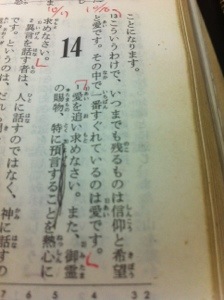 ことになります。
13こういうわけで、いつまでも残るものは信仰と希望
と愛です。その中で一番すぐれているのは愛です。
14
1愛を追い求めなさい。また、御霊
の賜物、特に預言することを熱心に
求めなさい。
2異言を話す者は、人に話すのではなく、神に話すの
です。というのは、